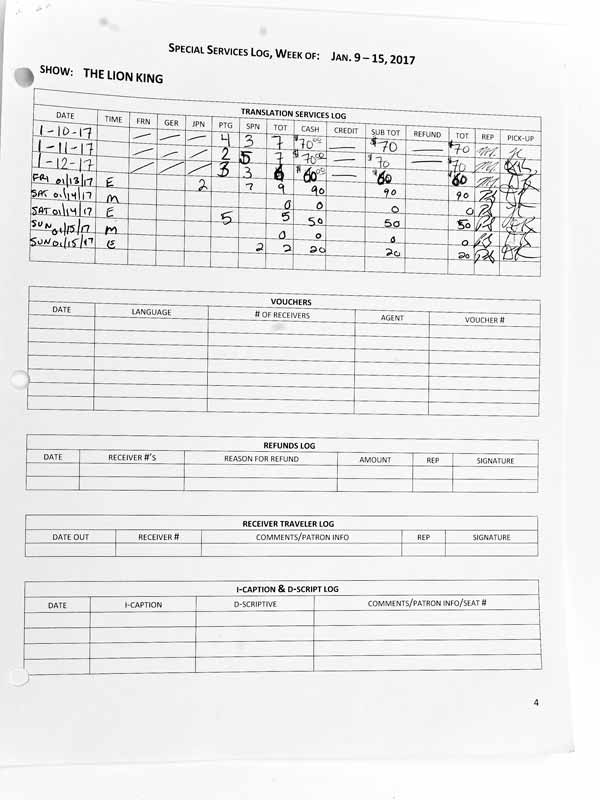 SPECIAL SERVICES LOG, WEEK OF: JAN. 9 – 15, 2017
SHOW: THE LION KING
TRANSLATION SERVICES LOG
DATE TIME FRN GER JPN PTG SPN TOT CASH CREDIT SUB TOT REFUND TOT REP PICK-UP
1-10-17 — — — 4 3 7 $70.00 — $70 — $70
1-11-17 — — — 2 5 7 $70.00 — $70 — $70
1-12-17 — — — 3 3 6 $60.00 — $60 — $60
FRI 01/13/17 E 2 7 9 90 90 90
SAT 01/14/17 M 0 0 0 0
SAT 01/14/17 E 5 5 50 50 50
SUN 01/15/17 M 0 0 0 0
SUN 01/15/17 E 2 2 20 20 20
VOUCHERS
DATE LANGUAGE # OF RECEIVERS AGENT VOUCHER #
REFUNDS LOG
DATE RECEIVER #'S REASON FOR REFUND AMOUNT REP SIGNATURE
RECEIVER TRAVELER LOG
DATE OUT RECEIVER # COMMENTS/PATRON INFO REP SIGNATURE
I-CAPTION & D-SCRIPT LOG
DATE I-CAPTION D-SCRIPTIVE COMMENTS/PATRON INFO/SEAT #
4